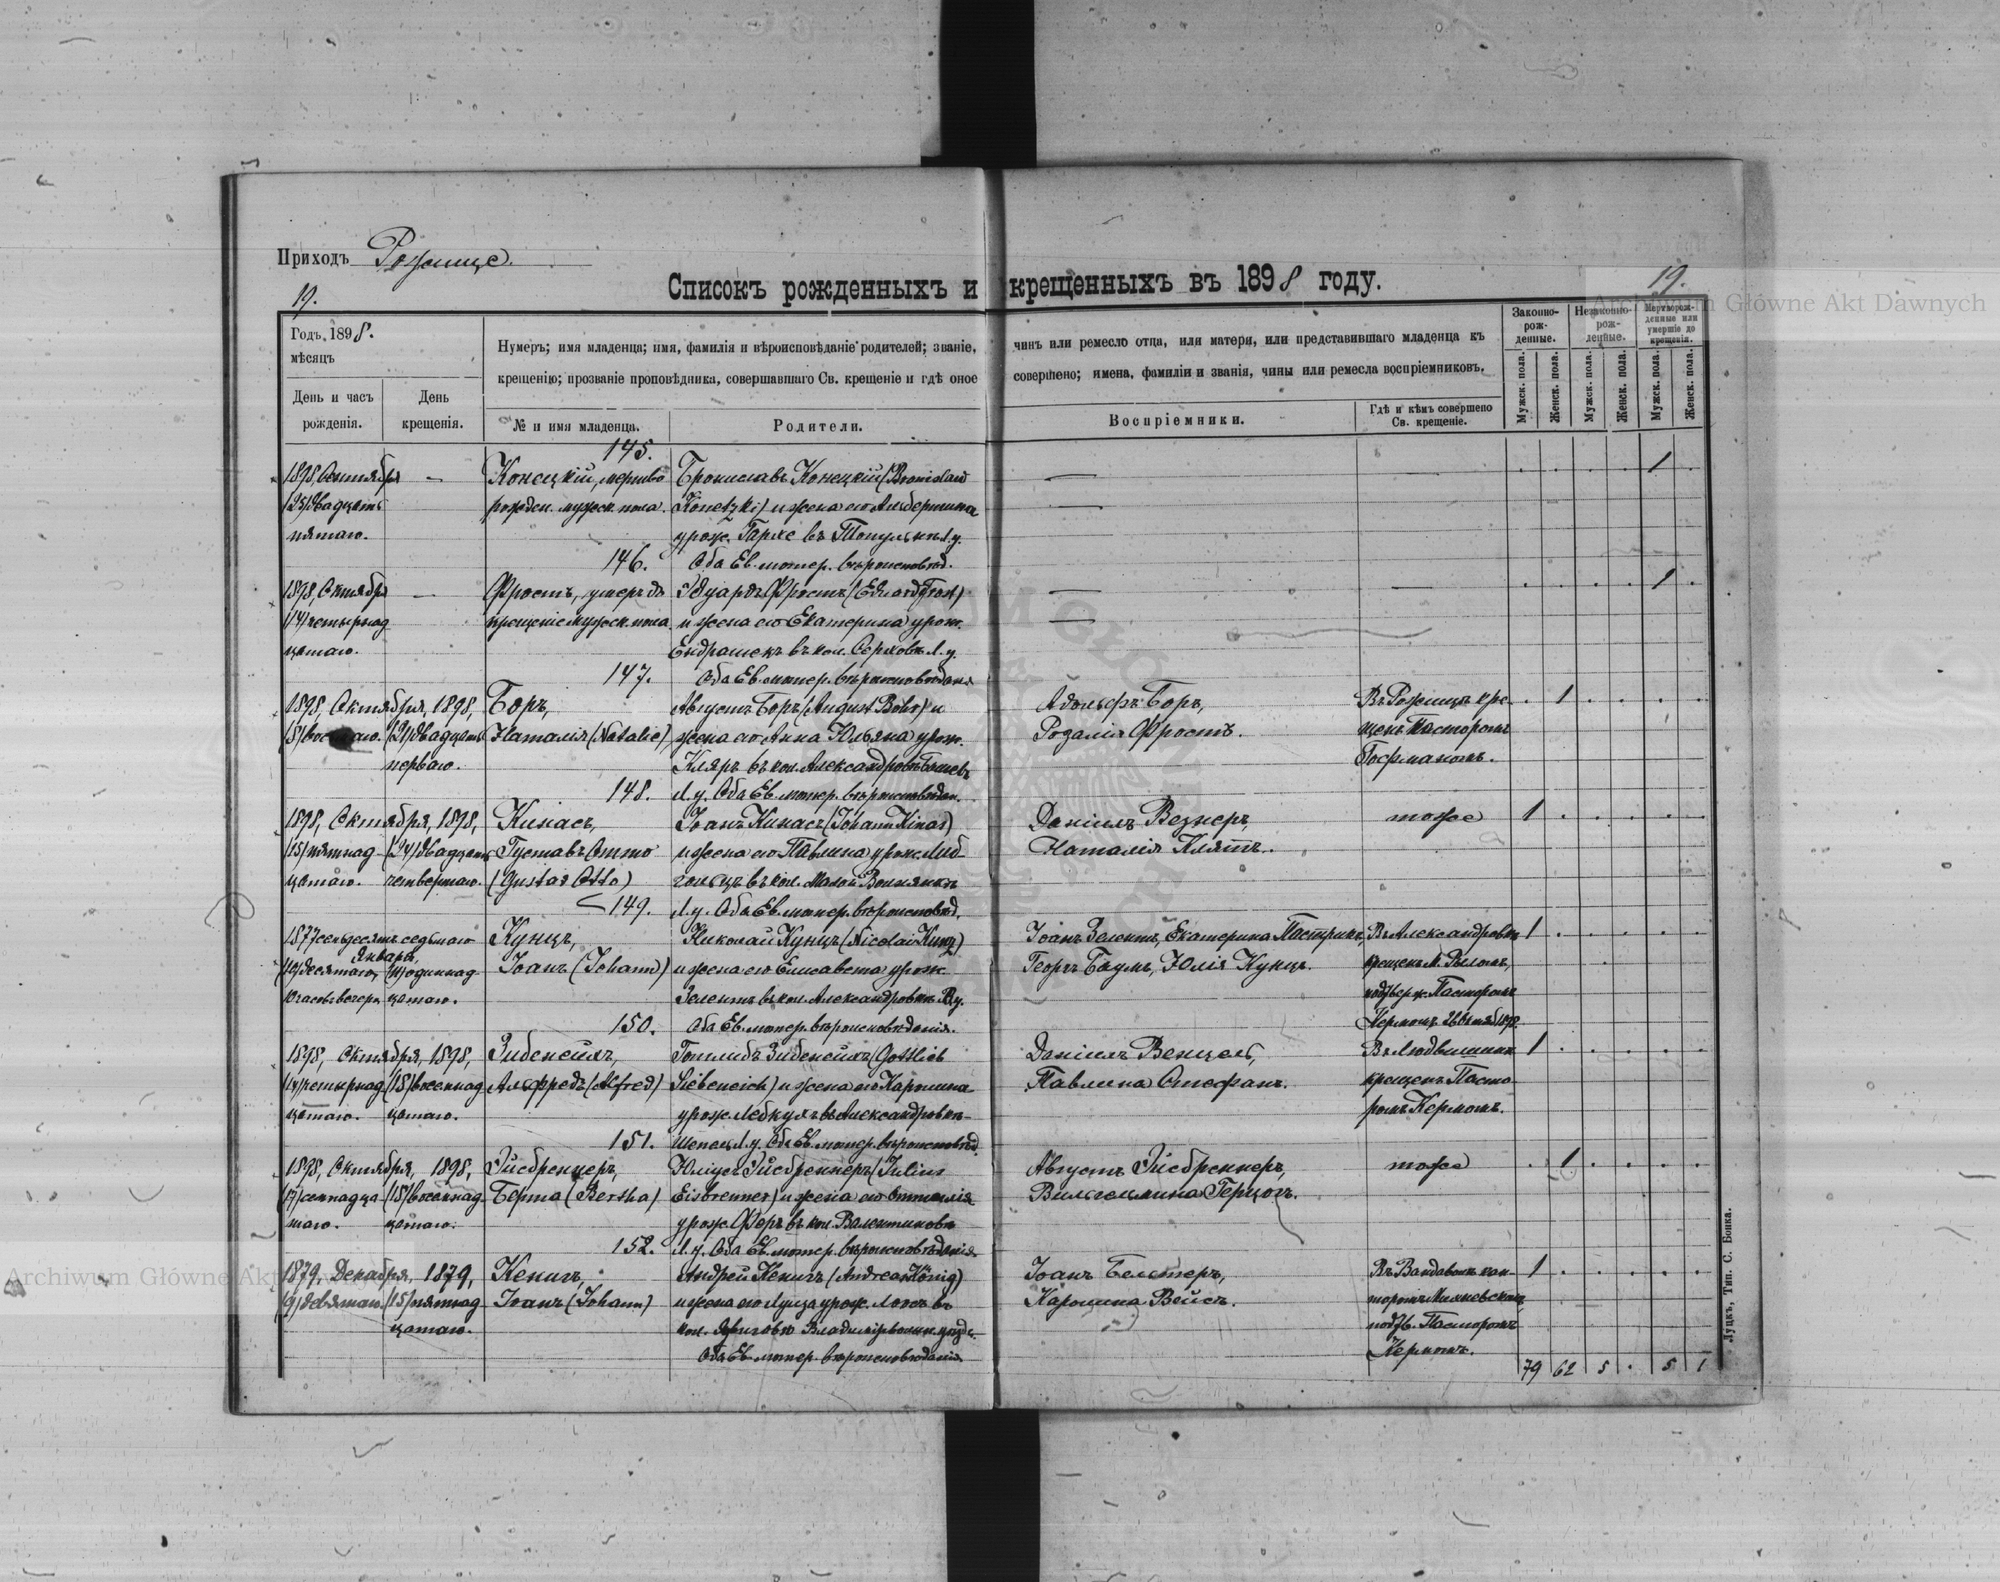 Приходъ Рожище.
Списокъ рожденныхъ и крещенныхъ въ 1898 году.
19.
19.
Archiwum Główne Akt Dawnych
Годъ, 1898.
мѣсяцъ
День и часъ
рожденія.
День
крещенія.
Нумеръ; имя младенца; имя, фамилія и вѣроисповѣданіе родителей; званіе,
крещенію; прозваніе проповѣдника, совершавшаго Св. крещеніе и гдѣ оное
№ и имя младенца.
Родители.
чинъ или ремесло отца, или матери, или представившаго младенца къ
совершено; имена, фамиліи и званія, чины или ремесла воспріемниковъ.
Воспріемники.
Гдѣ и кѣмъ совершено
Св. крещеніе.
Законно-
рож-
денные.
Незаконно-
рож-
денные.
Мертворож-
денные или
умершіе до
крещенія.
Мужск. пола.
Женск. пола.
Мужск. пола.
Женск. пола.
Мужск. пола.
Женск. пола.
145.
1898, Сентября
(25) двадцать
пятаго.
—
Конецкій, мертво
рожден. мужск. пола.
Брониславъ Конецкій (Bronislaw
Konetzki) и жена его Альбертина
урож. въ Л. у.
Оба Ев. лютер. вѣроисповѣд.
1
146.
1898, Октября
(14) четырнад
цатаго.
—
Фростъ, умеръ до
крещенія мужск. пола.
Эдуардъ Фростъ (Eduard Frost)
и жена его Екатерина урож.
Ендрашекъ въ кол. Л. у.
Оба Ев. лютер. вѣроисповѣданія
1
147.
1898, Октября, 1898,
(8) (21) двадцать
перваго.
Боръ,
Наталія (Natalie)
Августъ Боръ (August Bohr) и
жена его Анна Юльяна урож.
Кляръ въ кол.
Л. у. Оба Ев. лютер. вѣроисповѣдан.
Адольфъ Боръ,
Розалія Фростъ.
Въ Рожищѣ кре-
щенъ Пасторомъ
Гофманомъ.
1
148.
1898, Октября, 1898,
(15) пятнад (24) двадцать
цатаго. четвертаго.
Кинасъ,
Густавъ Отто
(Gustav Otto)
Іоанъ Кинасъ (Johann Kinas)
и жена его Павлина урож. Либ-
въ кол.
Л. у. Оба Ев. лютер. вѣроисповѣд.
Даніилъ Везнеръ,
Наталія
тоже
1
149.
1877 семьдесятъ седьмаго
Января,
(10) десятаго, (11) одиннад
цатаго.
Кунцъ,
Іоанъ (Johann)
Николай Кунцъ (Nicolai Kunz)
и жена его Елисавета урож.
Зелентъ въ кол. Александровкѣ
Оба Ев. лютер. вѣроисповѣданія.
Іоанъ Зелентъ, Екатерина
Георгъ Баумъ, Юлія Кунцъ.
Въ Александровкѣ
крещенъ
подтверж. Пасторомъ
Кермомъ.
1
150.
1898, Октября, 1898,
(14) четырнад (18) восемнад
цатаго. цатаго.
Зибенейхъ,
Альфредъ (Alfred)
Готлибъ Зибенейхъ (Gottlieb
Siebeneich) и жена его Каролина
урож. въ Александровкѣ-
Л. у. Оба Ев. лютер. вѣроисповѣд.
Даніилъ Венцель,
Павлина Стефанъ.
крещенъ Пасто-
ромъ Кермомъ.
1
151.
1898, Октября, 1898,
(17) семнадца (18) восемнад
таго. цатаго.
Эйсбреннеръ,
Берта (Bertha)
Юліусъ Эйсбреннеръ (Julius
Eisbrenner) и жена его Оттилія
урож. въ кол. Валентиновкѣ
Л. у. Оба Ев. лютер. вѣроисповѣданія.
Августъ Эйсбреннеръ,
Вильгельмина Герцогъ.
тоже
1
152.
1879, Декабря, 1879,
(9) девятаго. (15) пятнад
цатаго.
Кенигъ,
Іоанъ (Johann)
Андрей Кенигъ (Andreas König)
и жена его Луиза урож. въ
кол.
Оба Ев. лютер. вѣроисповѣданія
Іоанъ
Каролина Вейсъ.
кан-
торомъ
подтв. Пасторомъ
Кермомъ.
1
79 62 5 . 5 1
Луцкъ, Тип. С. Бонка.
Archiwum Główne Akt